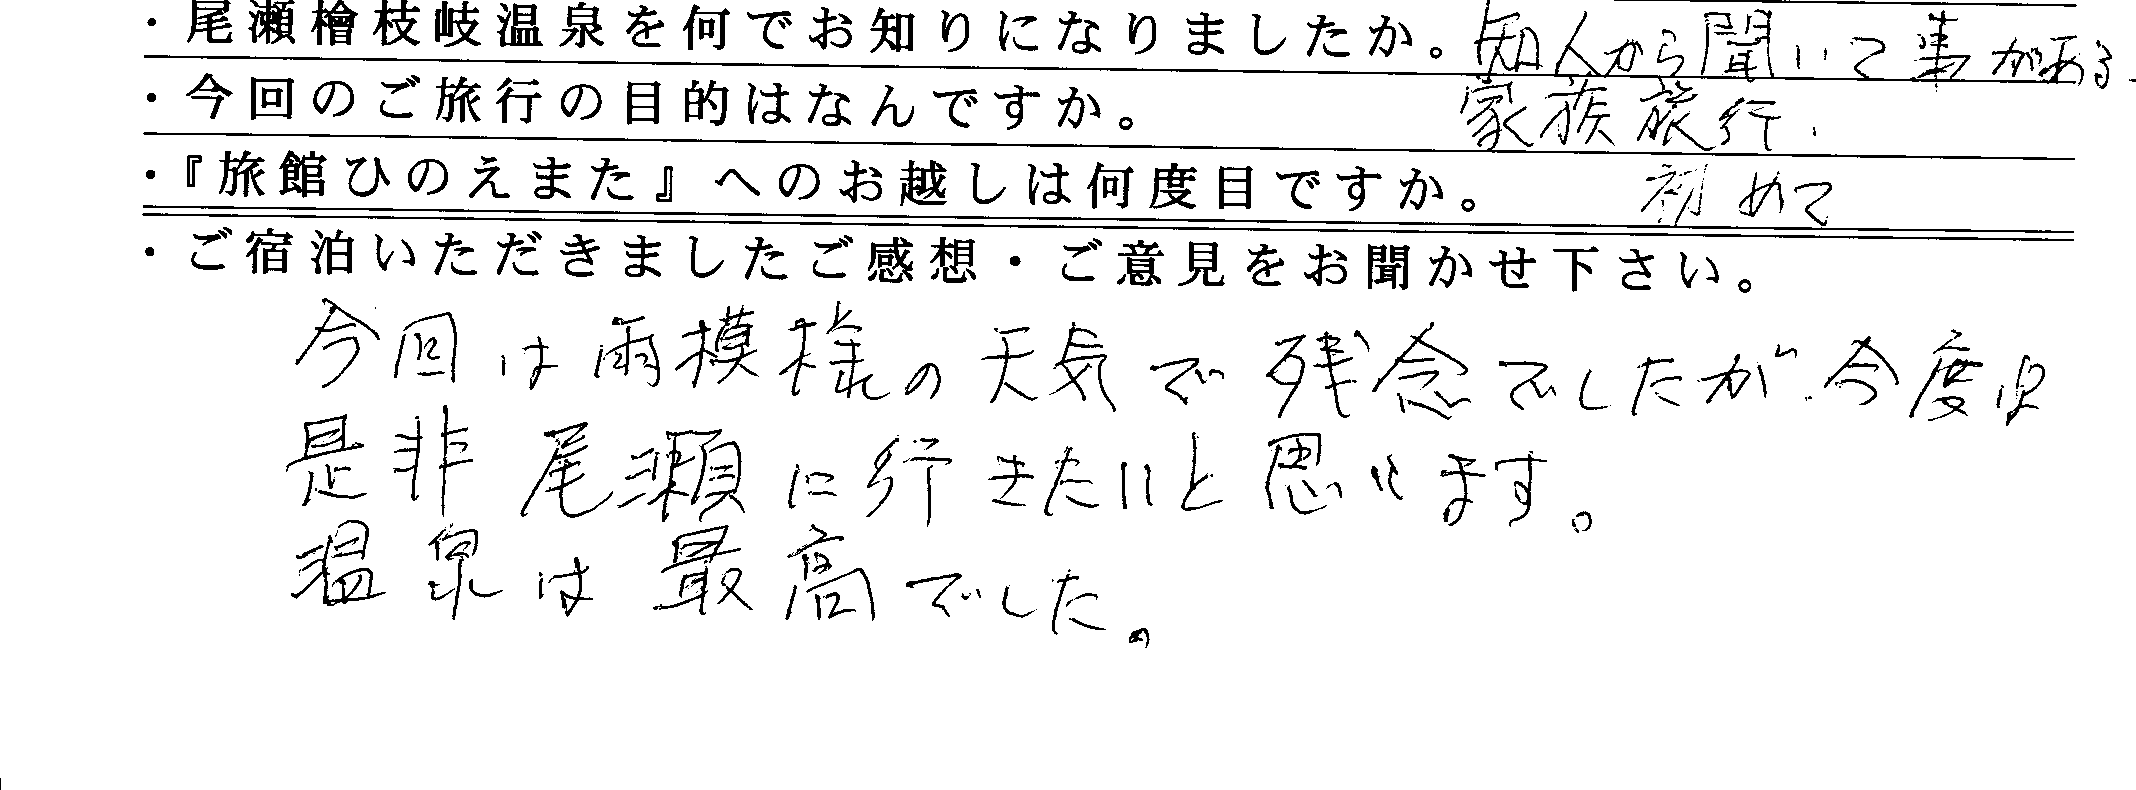 ・尾瀬檜枝岐温泉を何でお知りになりましたか。知人から聞いて事がある。
・今回のご旅行の目的はなんですか。家族旅行.
・『旅館ひのえまた』へのお越しは何度目ですか。初めて
・ご宿泊いただきましたご感想・ご意見をお聞かせ下さい。
今回は雨模様の天気で残念でしたが、今度は
是非尾瀬に行きたいと思います。
温泉は最高でした。